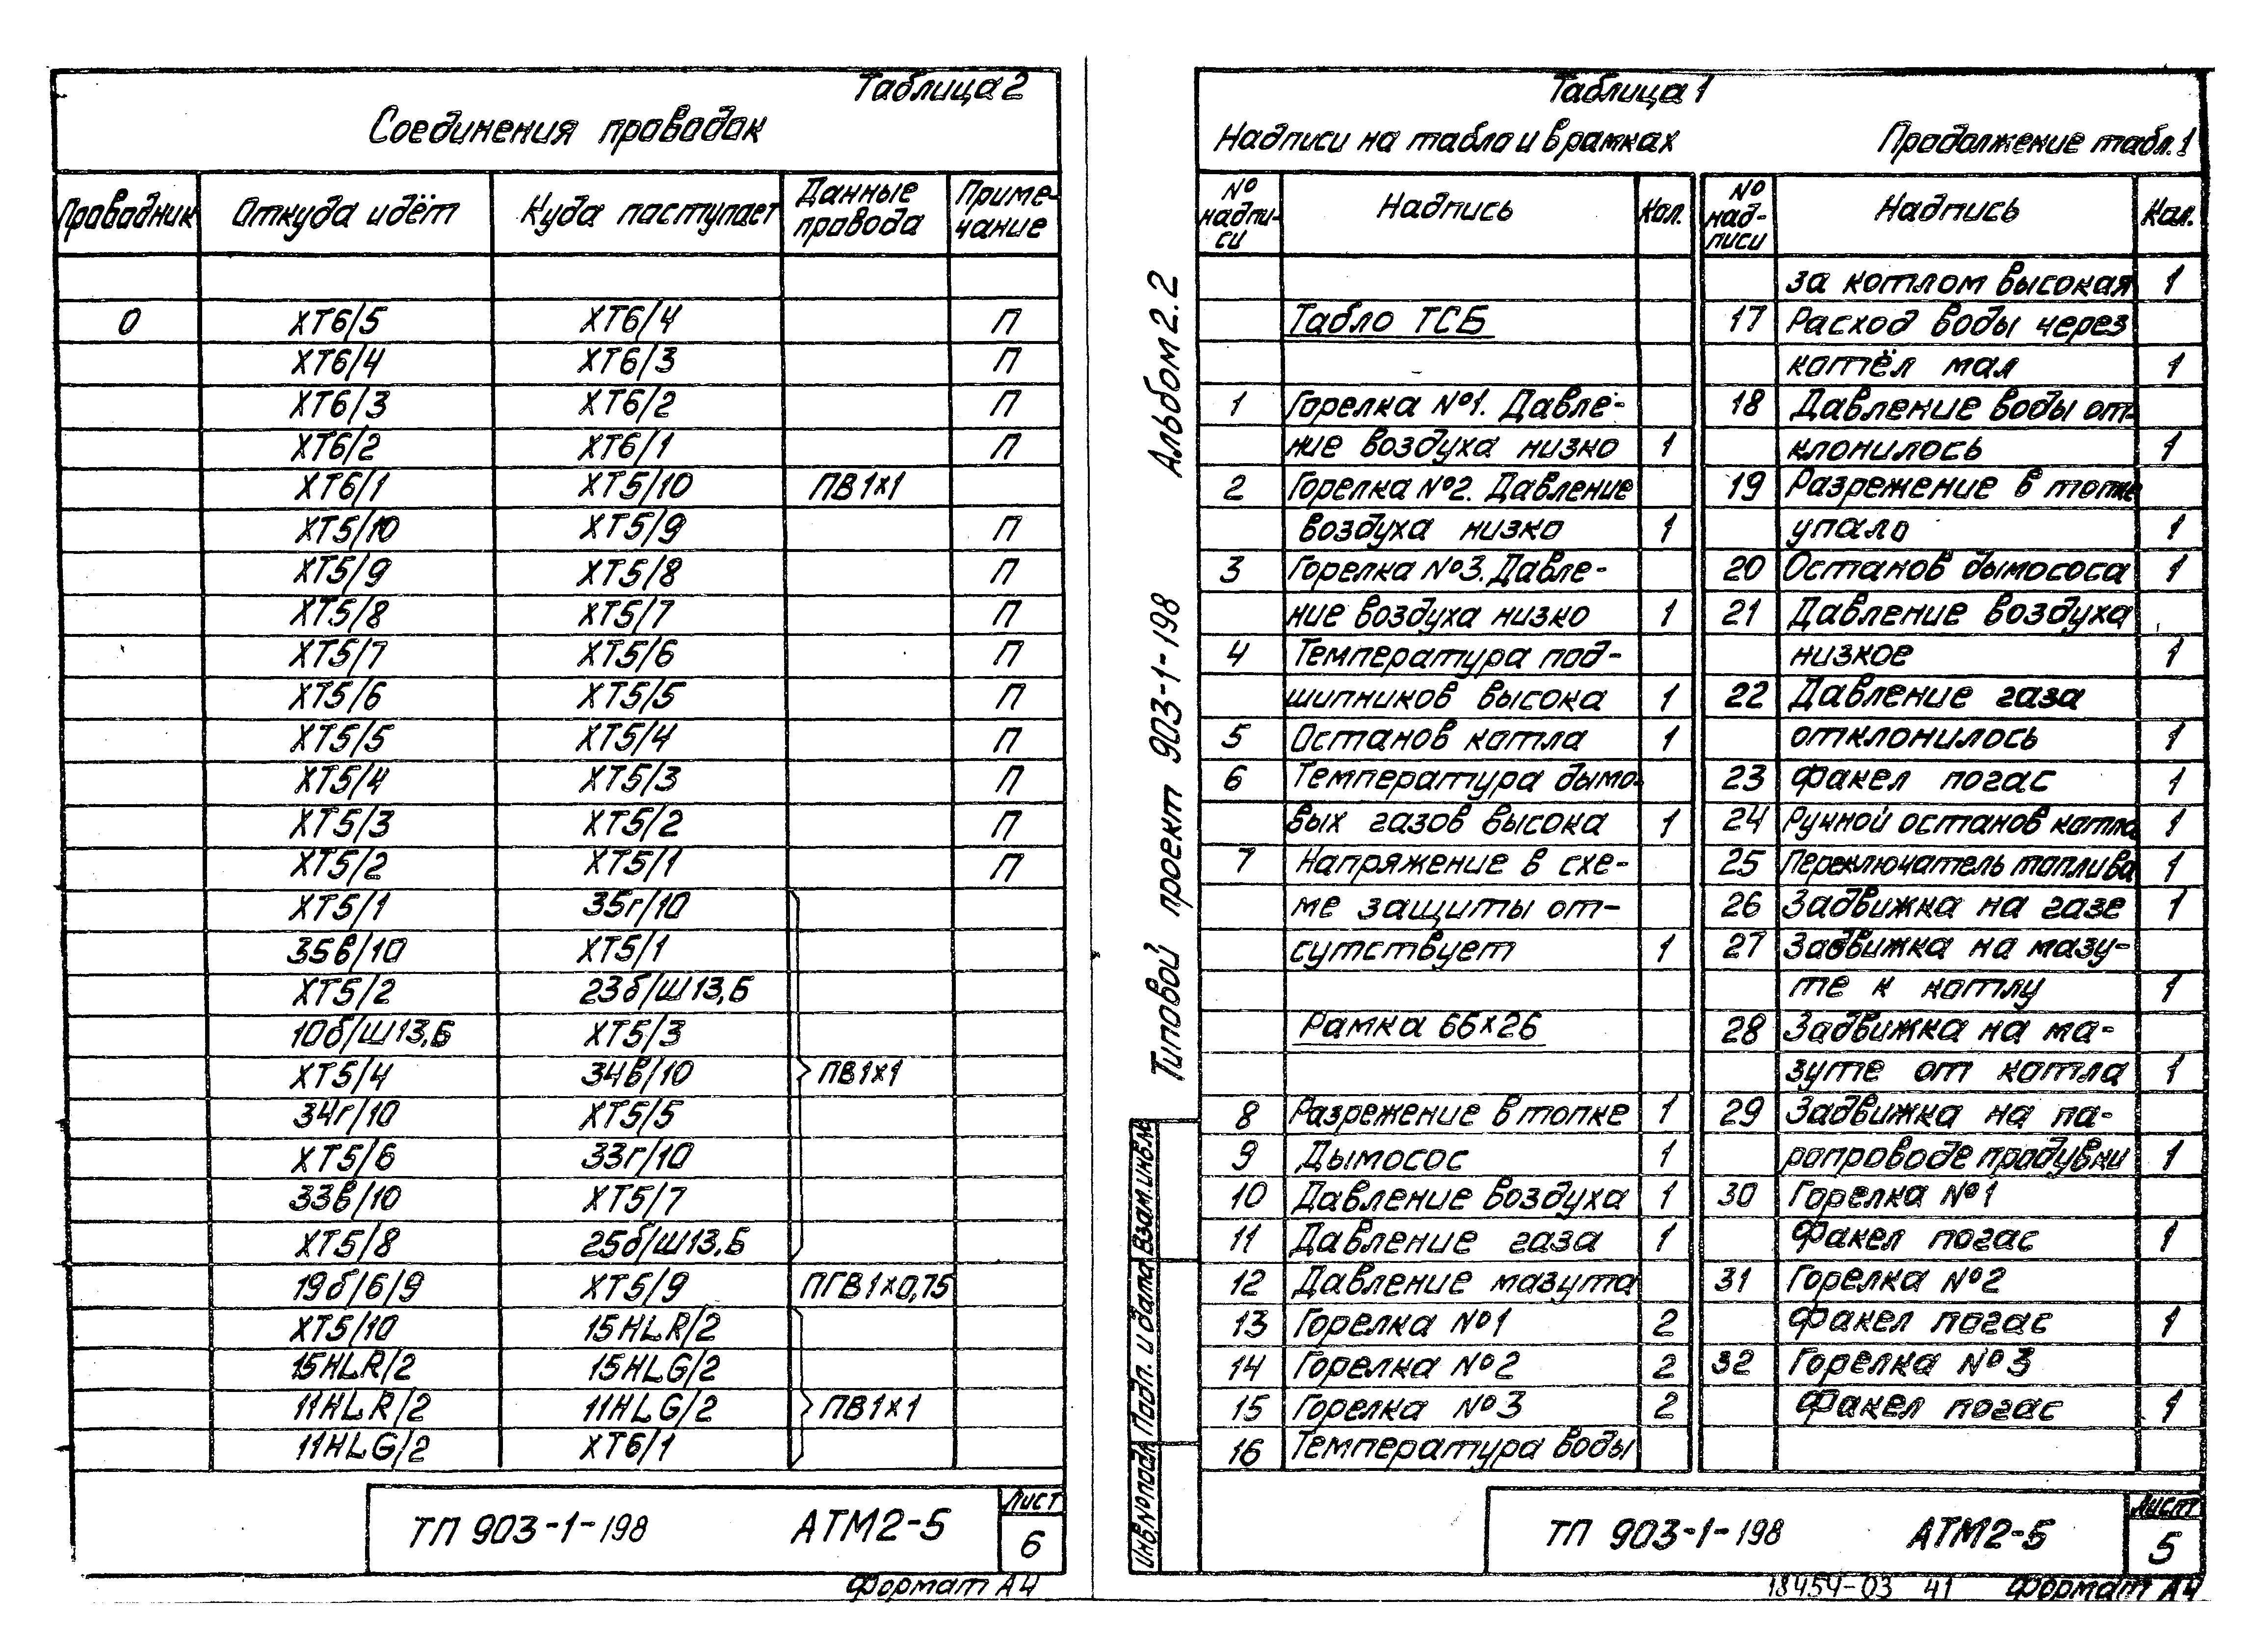 Таблица 2
Соединения проводок
Проводник Откуда идёт Куда поступает Данные провода Приме-чание
0 ХТ6/5 ХТ6/4 П
ХТ6/4 ХТ6/3 П
ХТ6/3 ХТ6/2 П
ХТ6/2 ХТ6/1 П
ХТ6/1 ХТ5/10 ПВ1х1
ХТ5/10 ХТ5/9 П
ХТ5/9 ХТ5/8 П
ХТ5/8 ХТ5/7 П
ХТ5/7 ХТ5/6 П
ХТ5/6 ХТ5/5 П
ХТ5/5 ХТ5/4 П
ХТ5/4 ХТ5/3 П
ХТ5/3 ХТ5/2 П
ХТ5/2 ХТ5/1 П
ХТ5/1 35г/10
35в/10 ХТ5/1
ХТ5/2 23б/Ш13,Б
10б/Ш13,Б ХТ5/3
ХТ5/4 34в/10 ПВ1х1
34г/10 ХТ5/5
ХТ5/6 33г/10
33в/10 ХТ5/7
ХТ5/8 25б/Ш13,Б
19б/6/9 ХТ5/9 ПГВ1х0,75
ХТ5/10 15HLR/2
15HLR/2 15HLG/2
11HLR/2 11HLG/2 ПВ1х1
11HLG/2 ХТ6/1
ТП 903-1-198 АТМ2-5 Лист
6
Формат А4
Альбом 2.2
Типовой проект 903-1-198
Взам.инв.№
Подп. и дата
Инв.№подл.
Таблица 1
Надписи на табло и в рамках Продолжение табл.1
№ надпи-си Надпись Кол. № над-писи Надпись Кол.
за котлом высокая 1
Табло ТСБ 17 Расход воды через
котёл мал 1
1 Горелка №1. Давле- 18 Давление воды от-
ние воздуха низко 1 клонилось 1
2 Горелка №2. Давление 19 Разрежение в топке
воздуха низко 1 упало 1
3 Горелка №3. Давле- 20 Останов дымососа 1
ние воздуха низко 1 21 Давление воздуха
4 Температура под- низкое 1
шипников высока 1 22 Давление газа
5 Останов котла 1 отклонилось 1
6 Температура дымо- 23 Факел погас 1
вых газов высока 1 24 Ручной останов котла 1
7 Напряжение в схе- 25 Переключатель топлива 1
ме защиты от- 26 Задвижка на газе 1
сутствует 1 27 Задвижка на мазу-
те к котлу 1
Рамка 66х26 28 Задвижка на ма-
зуте от котла 1
8 Разрежение в топке 1 29 Задвижка на па-
9 Дымосос 1 ропроводе продувки 1
10 Давление воздуха 1 30 Горелка №1
11 Давление газа 1 Факел погас 1
12 Давление мазута 31 Горелка №2
13 Горелка №1 2 Факел погас 1
14 Горелка №2 2 32 Горелка №3
15 Горелка №3 2 Факел погас 1
16 Температура воды
ТП 903-1-198 АТМ2-5 Лист
5
18454-03 41 Формат А4